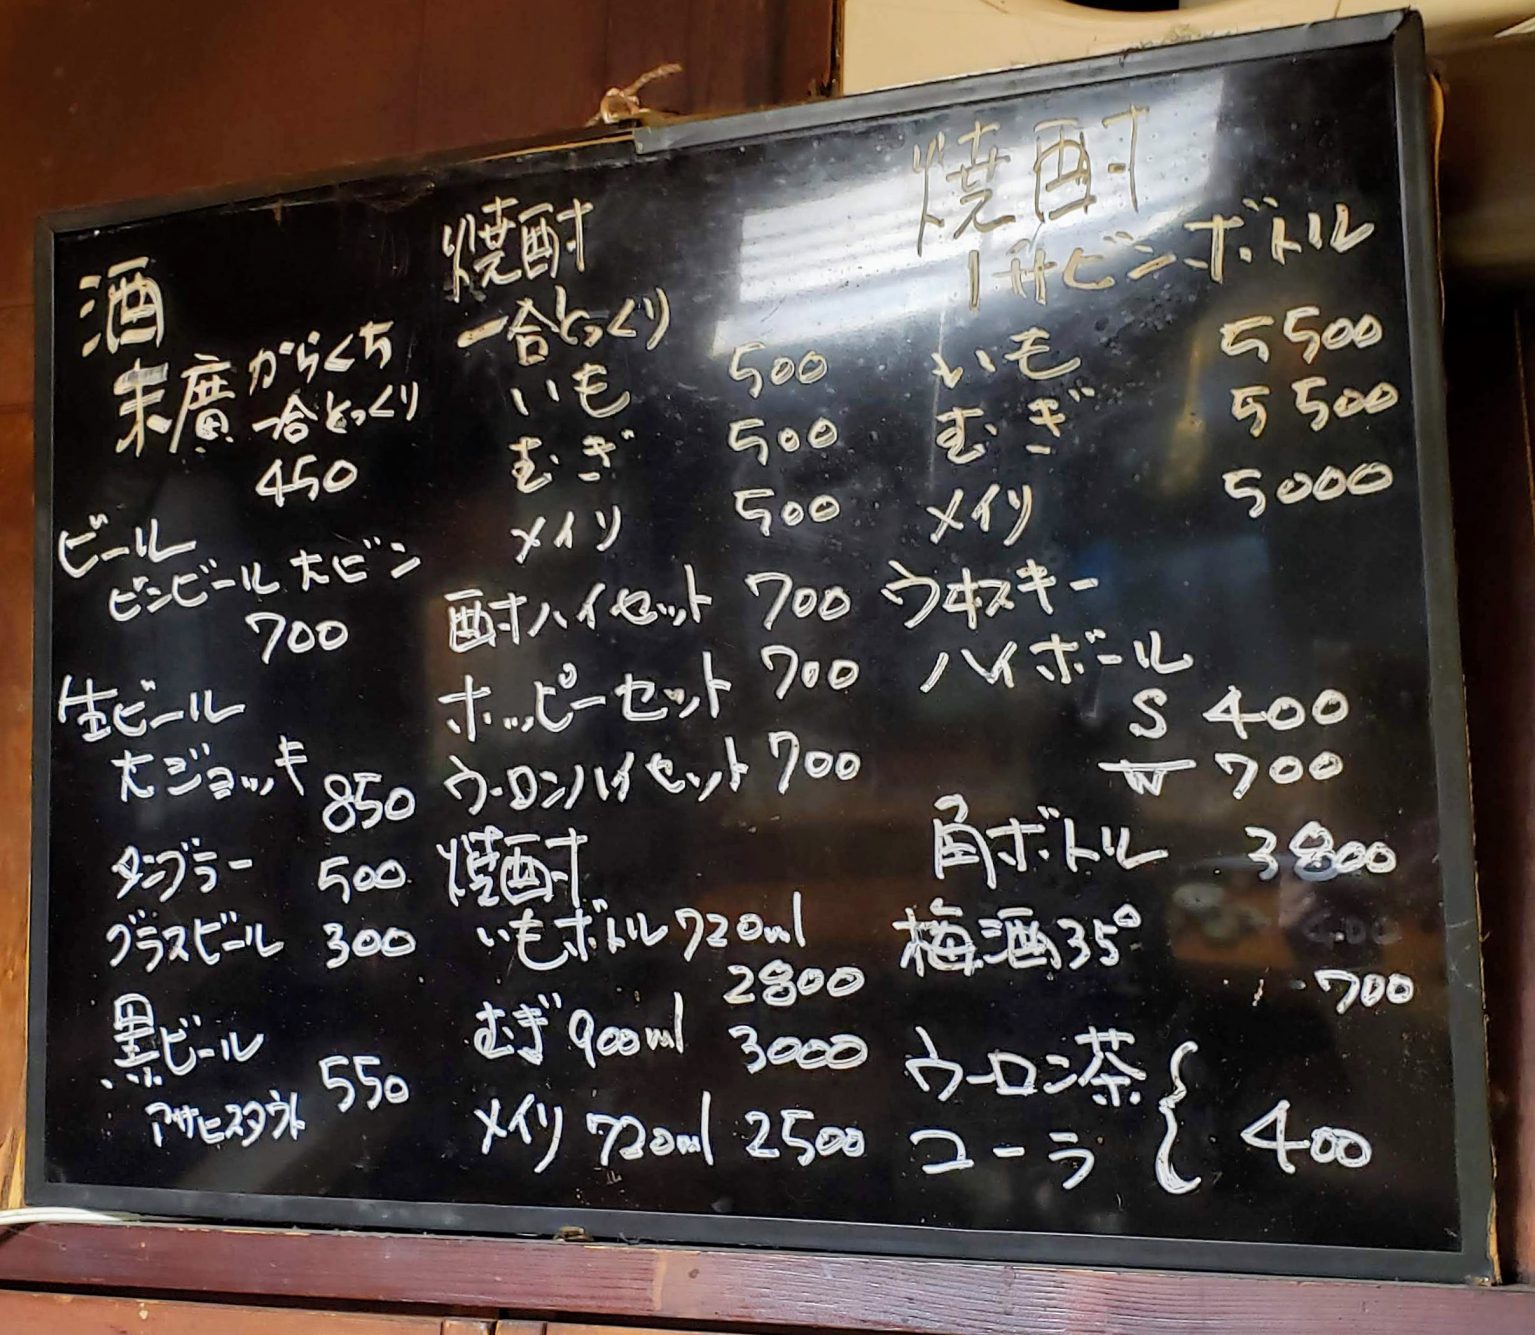 酒
末廣 からくち
一合とっくり
450
ビール
ビンビール 大ビン
700
生ビール
大ジョッキ 850
タンブラー 500
グラスビール 300
黒ビール
アサヒスタウト 550
焼酎
一合とっくり
いも 500
むぎ 500
メイリ 500
酎ハイセット 700
ホッピーセット 700
ウーロンハイセット 700
焼酎
いもボトル 720ml
2800
むぎ 900ml 3000
メイリ 720ml 2500
焼酎
1升ビンボトル
いも 5500
むぎ 5500
メイリ 5000
ウヰスキー
ハイボール
S 400
W 700
角ボトル 3800
梅酒35°
700
ウーロン茶
コーラ { 400